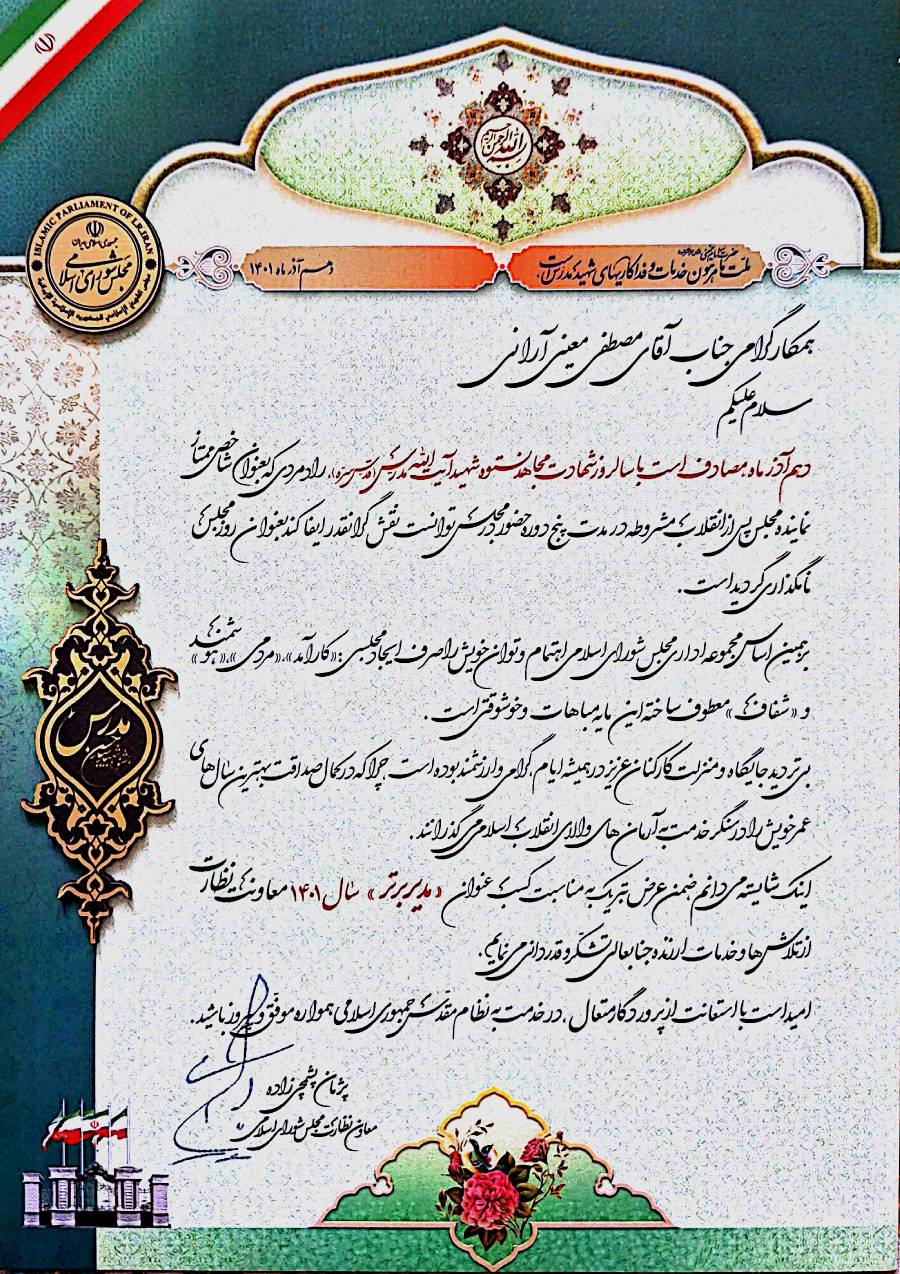 بسم الله الرحمن الرحیم
ISLAMIC PARLIAMENT OF I.R.IRAN
جمهوری اسلامی ایران
مجلس شورای اسلامی
ملت ما مرهون خدمات و فداکاریهای شهید مدرس است.
دهم آذر ماه ۱۴۰۱
همکار گرامی جناب آقای مصطفی معینی آرانی
سلام علیکم
دهم آذر ماه، مصادف است با سالروز شهادت مجاهد نستوه شهید آیت الله مدرس (قدس سره)، رادمردی که بعنوان شاخص ممتاز
نماینده مجلس پس از انقلاب مشروطه در مدت پنج دوره حضور در مجلس توانست نقش گرانقدر ایفا کند بعنوان روز مجلس
نامگذاری گردیده است.
بر همین اساس مجموعه اداری مجلس شورای اسلامی اهتمام و توان خویش را صرف ایجاد مجلسی: «کارآمد»، «مردمی»، «هوشمند»
و «شفاف» معطوف ساخته این مایه مباهات و خوشوقتی است.
بی تردید جایگاه و منزلت کارکنان عزیز در همیشه ایام، گرامی و ارزشمند بوده است چرا که در کمال صداقت بهترین سال های
عمر خویش را در سنگر خدمت به آرمان های والای انقلاب اسلامی می گذرانند.
اینک شایسته می دانم ضمن عرض تبریک به مناسبت کسب عنوان «مدیر برتر» سال ۱۴۰۱ معاونت نظارت
از تلاش ها و خدمات ارزنده جنابعالی تشکر و قدردانی می نمایم.
امید است با استعانت از پروردگار متعال، در خدمت به نظام مقدس جمهوری اسلامی همواره موفق و پیروز باشید.
پژمان پشمچی زاده
معاون نظارت مجلس شورای اسلامی
مدرس